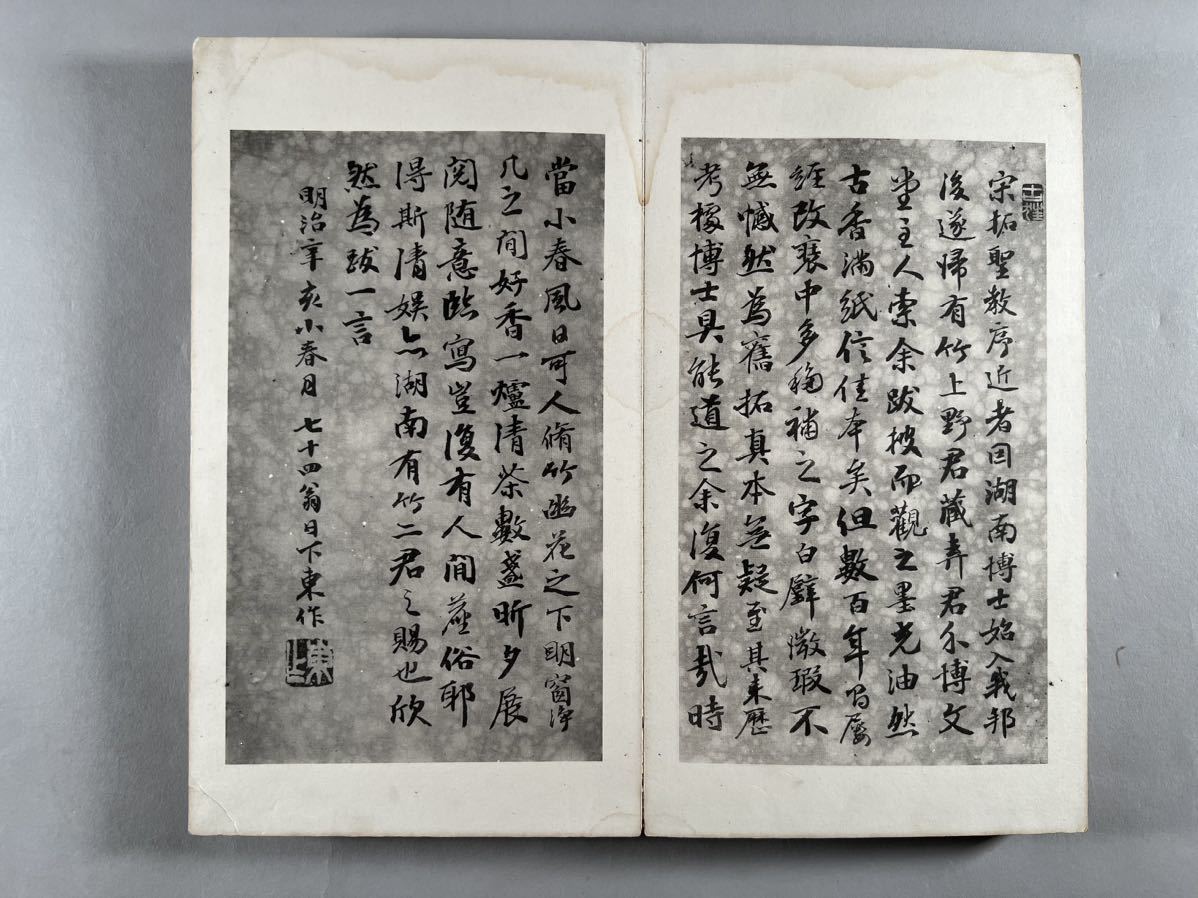 宋拓聖教序近者因湖南博士始入我邦
後遂歸有竹上野君藏弆君尔博文
堂主人索余跋披而觀之墨光油然
古香滿紙信佳本矣但數百年間屢
經改裝中多編補之字白璧微瑕不
無憾然為舊拓真本無疑至其来歷
考據博士具能道之余復何言哉時
當小春風日可人脩竹幽花之下明窗淨
几之間好香一爐清茶數盞昕夕展
閱随意臨寫豈復有人間塵俗耶
得斯清娛亦湖南有竹二君之賜也欣
然為跋一言
明治辛亥小春月七十四翁日下東作